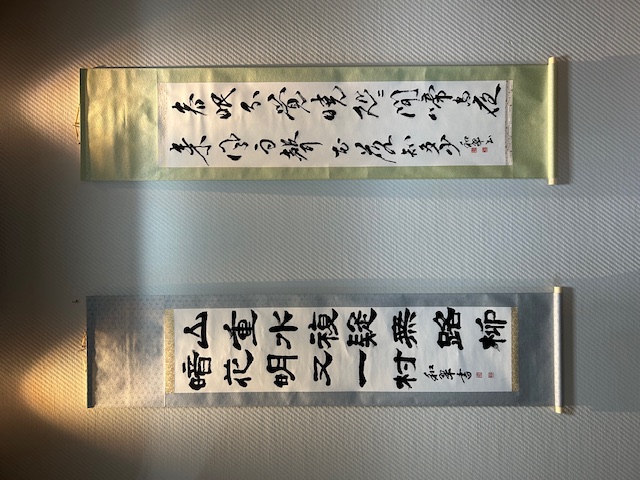 春眠不覺曉処々聞啼鳥夜
来風雨聲花落知多少
山重水複疑無路柳
暗花明又一村
和翠書